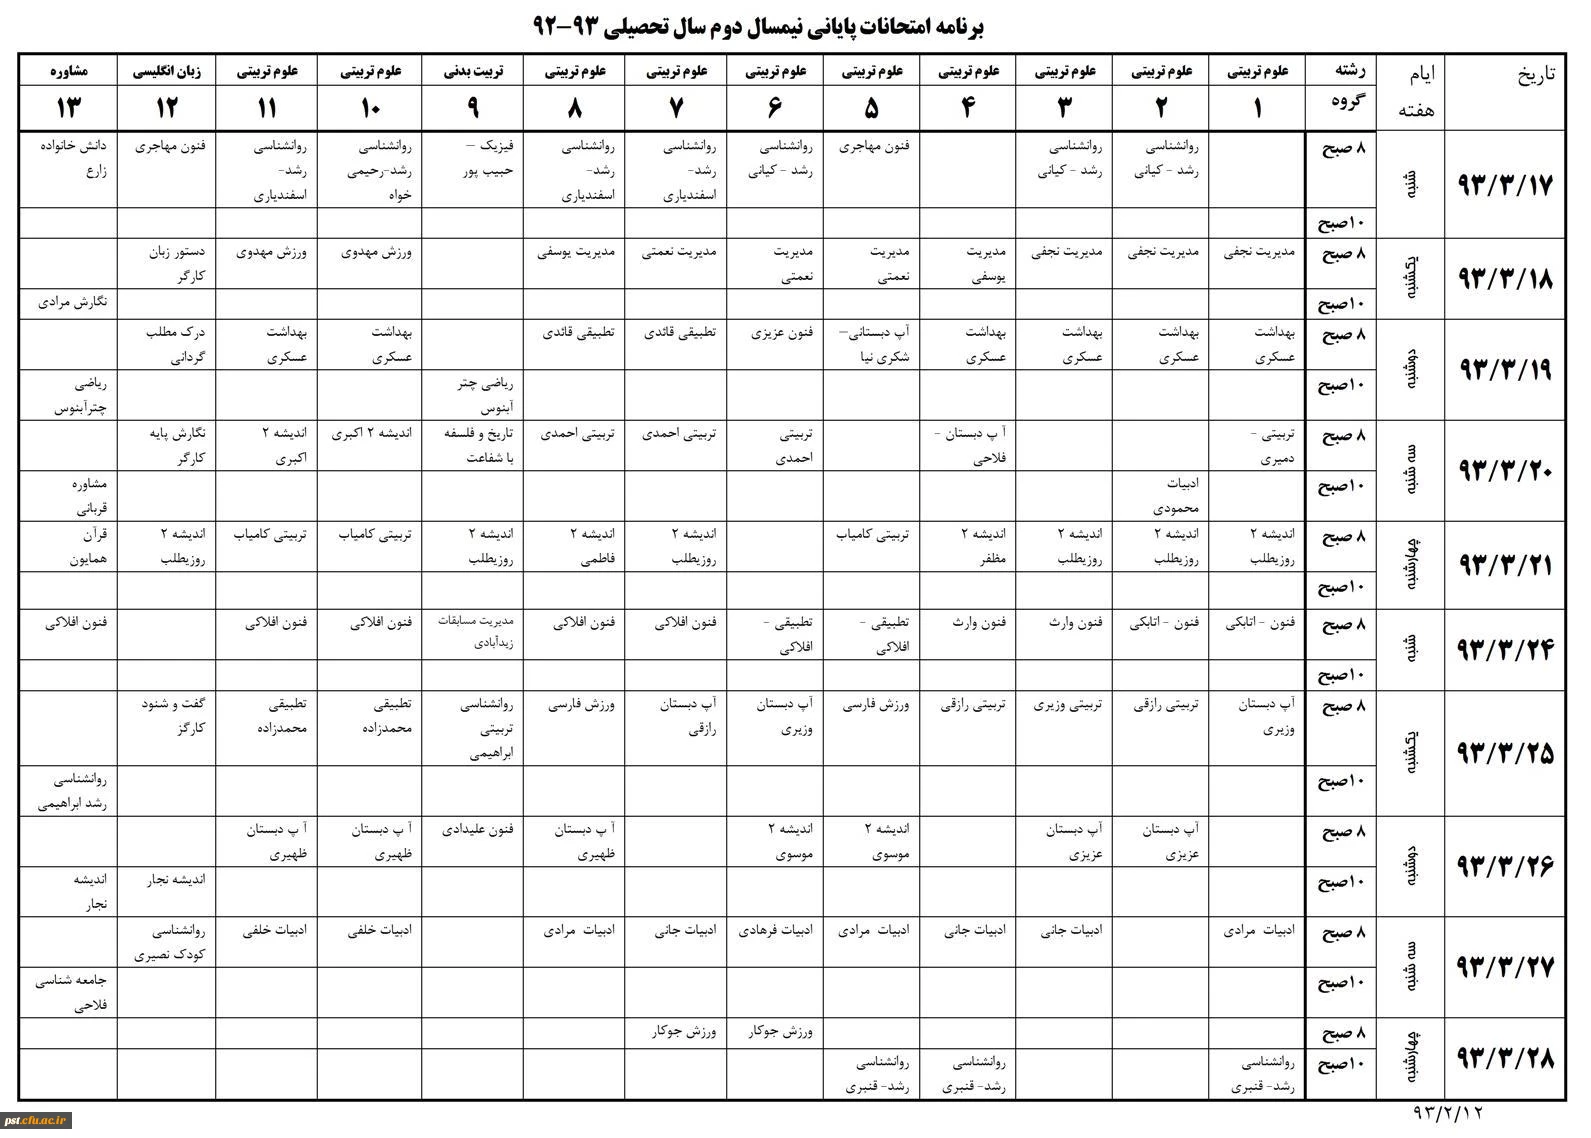 برنامه امتحانات پایانی نیمسال دوم سال تحصیلی ۹۳–۹۲
تاریخ ایام هفته رشته علوم تربیتی علوم تربیتی علوم تربیتی علوم تربیتی علوم تربیتی علوم تربیتی علوم تربیتی علوم تربیتی تربیت بدنی علوم تربیتی علوم تربیتی زبان انگلیسی مشاوره
گروه ۱ ۲ ۳ ۴ ۵ ۶ ۷ ۸ ۹ ۱۰ ۱۱ ۱۲ ۱۳
۹۳/۳/۱۷ شنبه ۸ صبح روانشناسی رشد - کیانی روانشناسی رشد - کیانی فنون مهاجری روانشناسی رشد - کیانی روانشناسی رشد- اسفندیاری روانشناسی رشد- اسفندیاری فیزیک – حبیب پور روانشناسی رشد-رحیمی خواه روانشناسی رشد- اسفندیاری فنون مهاجری دانش خانواده زارع
۱۰صبح
۹۳/۳/۱۸ یکشنبه ۸ صبح مدیریت نجفی مدیریت نجفی مدیریت نجفی مدیریت یوسفی مدیریت نعمتی مدیریت نعمتی مدیریت نعمتی مدیریت یوسفی ورزش مهدوی ورزش مهدوی دستور زبان کارگر
۱۰صبح نگارش مرادی
۹۳/۳/۱۹ دوشنبه ۸ صبح بهداشت عسکری بهداشت عسکری بهداشت عسکری بهداشت عسکری آپ دبستانی– شکری نیا فنون عزیزی تطبیقی قائدی تطبیقی قائدی بهداشت عسکری بهداشت عسکری درک مطلب گردانی
۱۰صبح ریاضی چتر آبنوس ریاضی چترآبنوس
۹۳/۳/۲۰ سه شنبه ۸ صبح تربیتی - دمیری آ پ دبستان - فلاحی تربیتی احمدی تربیتی احمدی تربیتی احمدی تاریخ و فلسفه با شفاعت اندیشه ۲ اکبری اندیشه ۲ اکبری نگارش پایه کارگر
۱۰صبح ادبیات محمودی مشاوره قربانی
۹۳/۳/۲۱ چهارشنبه ۸ صبح اندیشه ۲ روزیطلب اندیشه ۲ روزیطلب اندیشه ۲ روزیطلب اندیشه ۲ مظفر تربیتی کامیاب اندیشه ۲ روزیطلب اندیشه ۲ فاطمی اندیشه ۲ روزیطلب تربیتی کامیاب تربیتی کامیاب اندیشه ۲ روزیطلب قرآن همایون
۱۰صبح
۹۳/۳/۲۴ شنبه ۸ صبح فنون - اتابکی فنون - اتابکی فنون وارث فنون وارث تطبیقی - افلاکی تطبیقی - افلاکی فنون افلاکی فنون افلاکی مدیریت مسابقات زیدآبادی فنون افلاکی فنون افلاکی فنون افلاکی
۱۰صبح
۹۳/۳/۲۵ یکشنبه ۸ صبح آپ دبستان وزیری تربیتی رازقی تربیتی وزیری تربیتی رازقی ورزش فارسی آپ دبستان وزیری آپ دبستان رازقی ورزش فارسی روانشناسی تربیتی ابراهیمی تطبیقی محمدزاده تطبیقی محمدزاده گفت و شنود کارگز
۱۰صبح روانشناسی رشد ابراهیمی
۹۳/۳/۲۶ دوشنبه ۸ صبح آپ دبستان عزیزی آپ دبستان عزیزی اندیشه ۲ موسوی اندیشه ۲ موسوی آ پ دبستان ظهیری فنون علیدادی آ پ دبستان ظهیری آ پ دبستان ظهیری
۱۰صبح اندیشه نجار اندیشه نجار
۹۳/۳/۲۷ سه شنبه ۸ صبح ادبیات مرادی ادبیات جانی ادبیات جانی ادبیات مرادی ادبیات فرهادی ادبیات جانی ادبیات مرادی ادبیات خلفی ادبیات خلفی روانشناسی کودک نصیری
۱۰صبح جامعه شناسی فلاحی
۹۳/۳/۲۸ چهارشنبه ۸ صبح ورزش جوکار ورزش جوکار
۱۰صبح روانشناسی رشد- قنبری روانشناسی رشد- قنبری روانشناسی رشد- قنبری
۹۳/۲/۱۲
pst.cfu.ac.ir